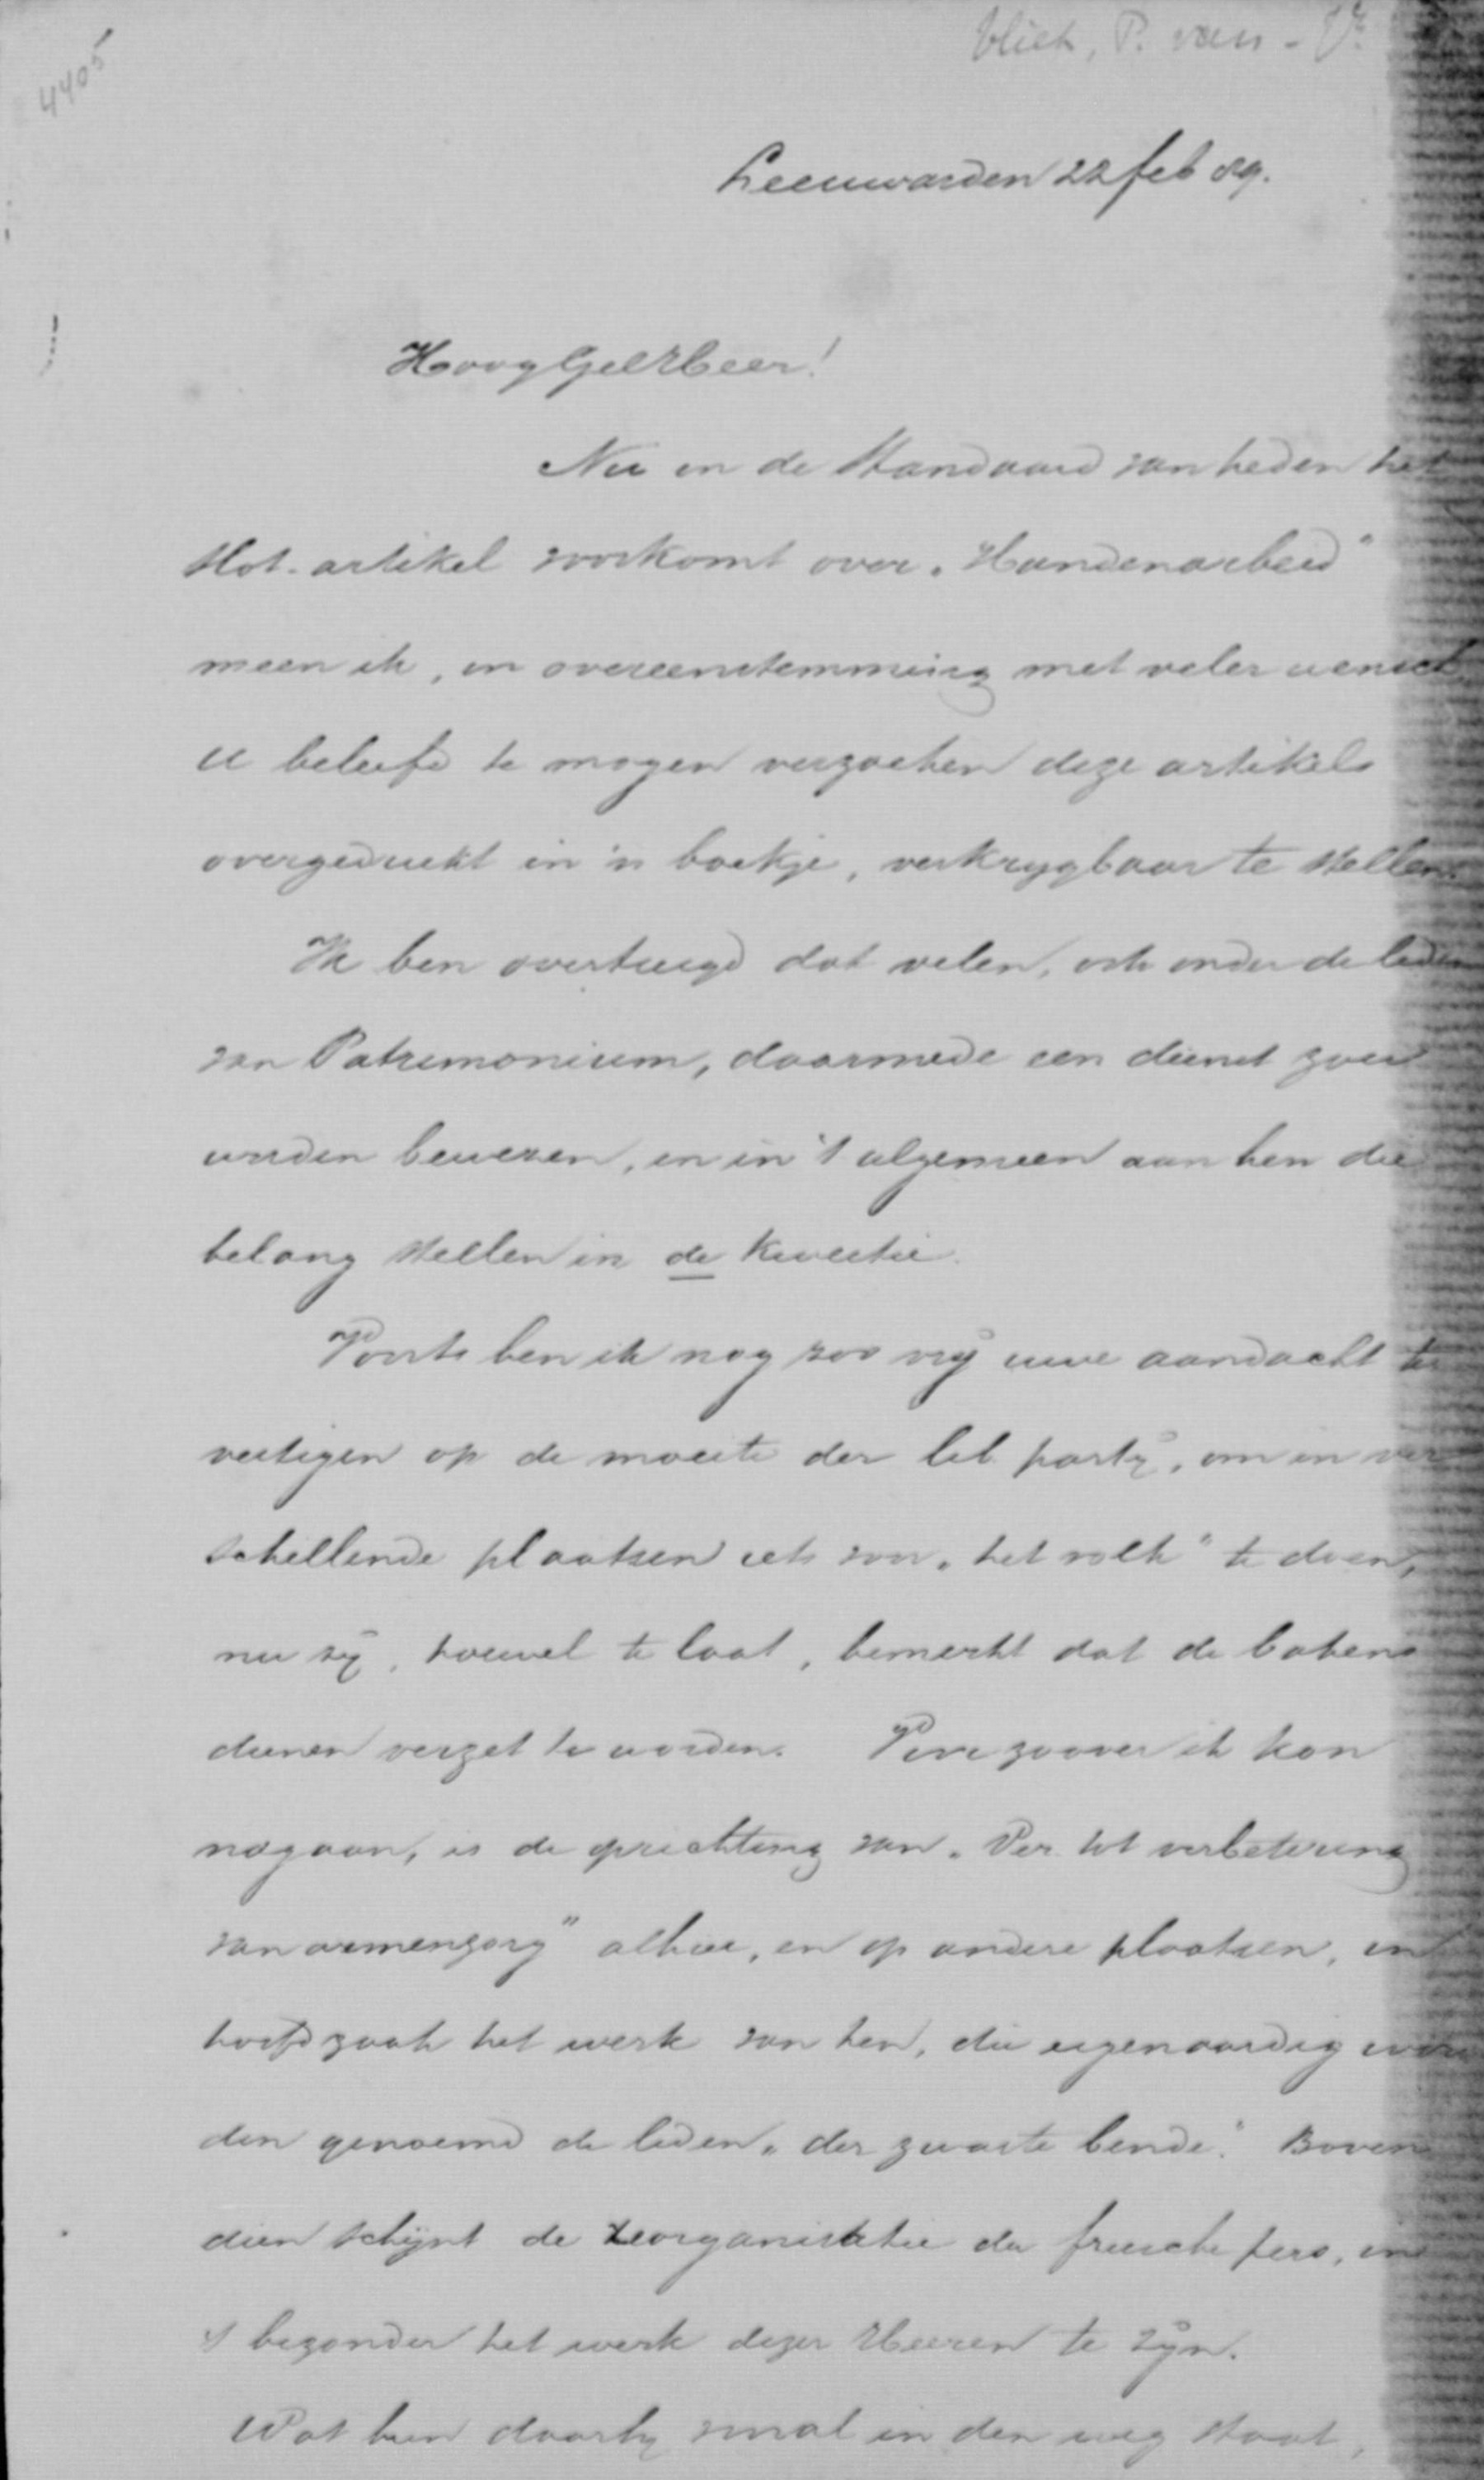 Vliet, P. van - Jr.
4405
Leeuwarden 22 feb 89.
HoogGelHeer!
Nu in de Standaard van heden het
slot-artikel voorkomt over „Handenarbeid"
meen ik, in overeenstemming met veler wensch
U beleefd te mogen verzoeken deze artikels
overgedrukt in 'n boekje, verkrygbaar te stellen.
Ik ben overtuigd dat velen, ook onder de leden
van Patrimonium, daarmede een dienst zou
worden bewezen, en in 't algemeen aan hen die
belang stellen in de kwestie.
Voorts ben ik nog zoo vrij uwe aandacht te
vestigen op de moeite der lib party, om in ver
schillende plaatsen iets voor „het volk" te doen,
nu zij, hoewel te laat, bemerkt dat de bakens
dienen verzet te worden. Voor zoover ik kan
nagaan, is de oprichting van „Ver. tot verbetering
van armenzorg" alhier, en op andere plaatsen, in
hoofdzaak het werk van hen, die eigenaardig wor
den genoemd de leden „der zwarte bende". Boven
dien schijnt de reorganisatie der friesche pers, in
't bezonder het werk dezer Heeren te zijn.
Wat hun daarbij in den weg staat,